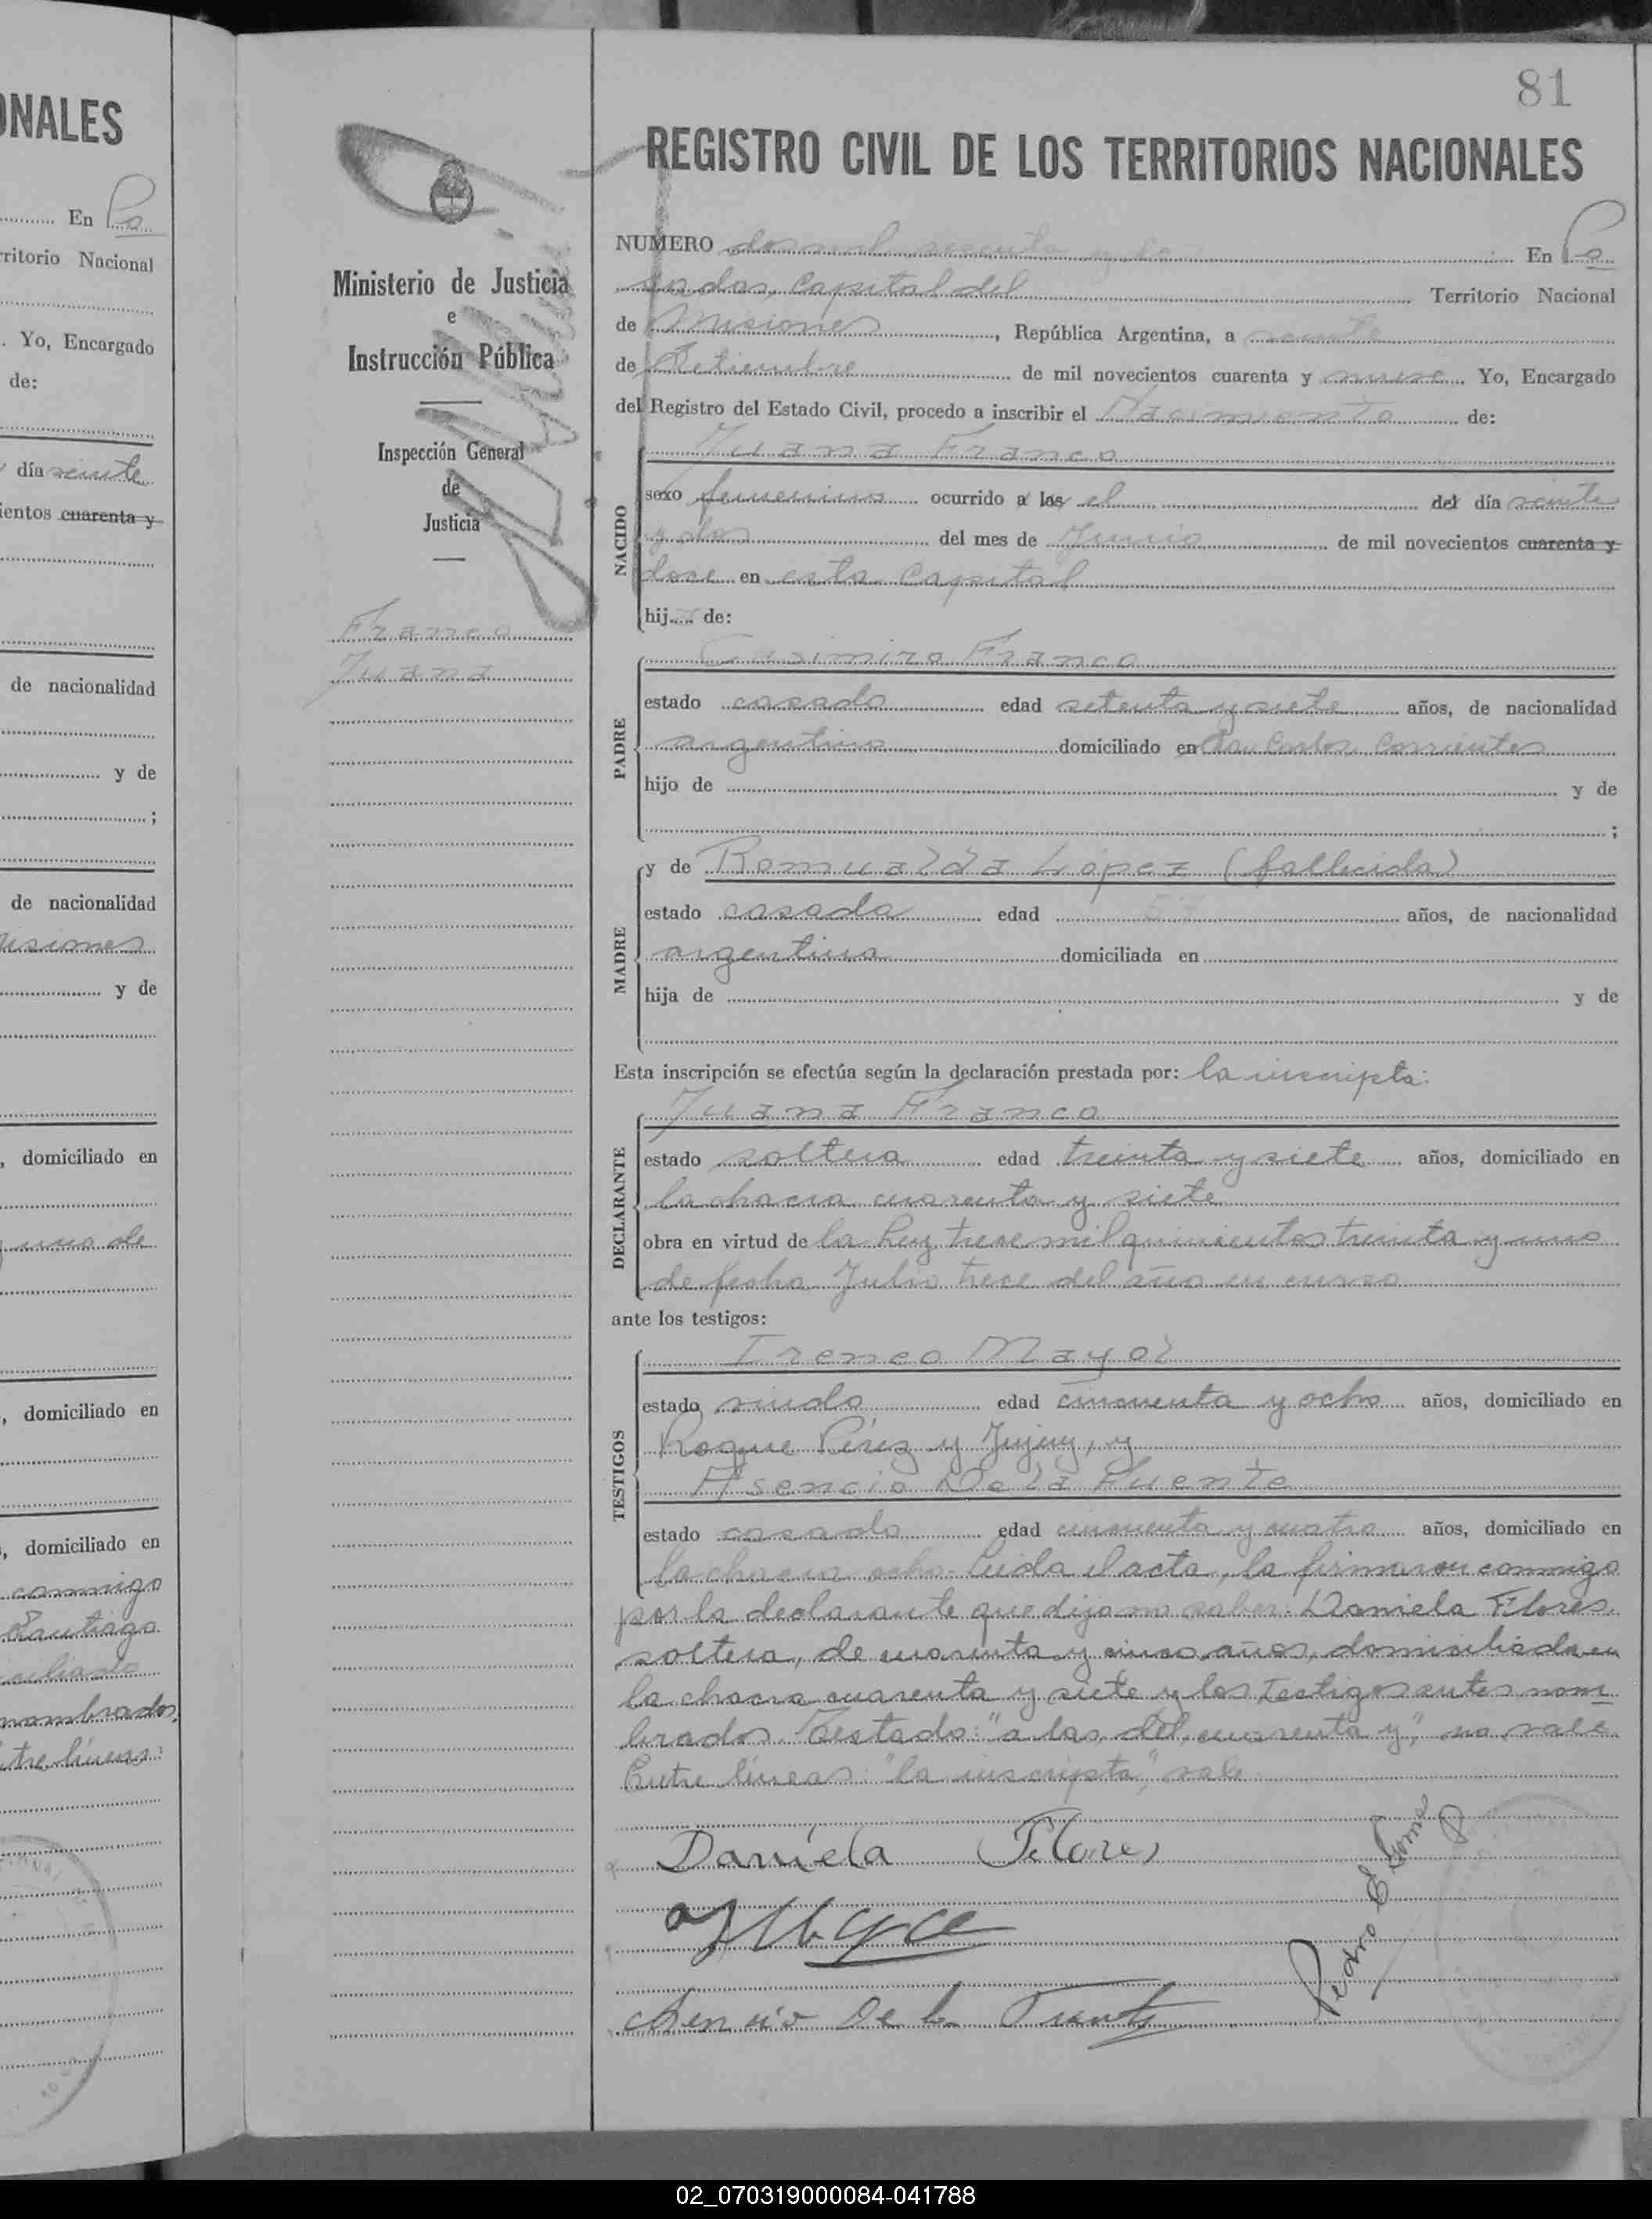 ONALES
En Po
rritorio Nacional
. Yo, Encargado
de:
día veinte
ientos cuarenta y
de nacionalidad
y de
;
de nacionalidad
isiones
y de
, domiciliado en
uno de
, domiciliado en
, domiciliado en
conmigo
Santiago
ciliado
nombrados.
tre líneas:
Ministerio de Justicia
e
Instrucción Pública
Inspección General
de
Justicia
Franco
Juana
81
REGISTRO CIVIL DE LOS TERRITORIOS NACIONALES
NUMERO dos mil sesenta y dos En Po
sadas, Capital del Territorio Nacional
de Misiones, República Argentina, a veinte
de Setiembre de mil novecientos cuarenta y nueve. Yo, Encargado
del Registro del Estado Civil, procedo a inscribir el Nacimiento de:
Juana Franco
NACIDO
sexo femenino ocurrido a las el del día veinte
y dos del mes de Junio de mil novecientos cuarenta y
doce en esta Capital
hija de:
Casimiro Franco
PADRE
estado casado edad setenta y siete años, de nacionalidad
argentino domiciliado en San Carlos, Corrientes
hijo de y de
;
y de Romualda López (fallecida)
MADRE
estado casada edad años, de nacionalidad
argentina domiciliada en
hija de y de
Esta inscripción se efectúa según la declaración prestada por: la inscripta:
Juana Franco
DECLARANTE
estado soltera edad treinta y siete años, domiciliado en
la chacra cuarenta y siete
obra en virtud de la Ley trece mil quinientos treinta y uno
de fecha Julio trece del año en curso
ante los testigos:
Ireneo Mayol
TESTIGOS
estado viudo edad cincuenta y ocho años, domiciliado en
Roque Pérez y Jujuy, y
Asencio De la Fuente
estado casado edad cincuenta y cuatro años, domiciliado en
la chacra ocho. Leida el acta, la firmaron conmigo
por la declarante que dijo no saber: Daniela Flores
soltera, de cuarenta y cinco años, domiciliada en
la chacra cuarenta y siete y los testigos antes nom
brados. Testado: "a las, del, cuarenta y", no vale
Entre líneas: "la inscripta", vale
Daniela Flores
Asencio De la Fuente
02_070319000084-041788